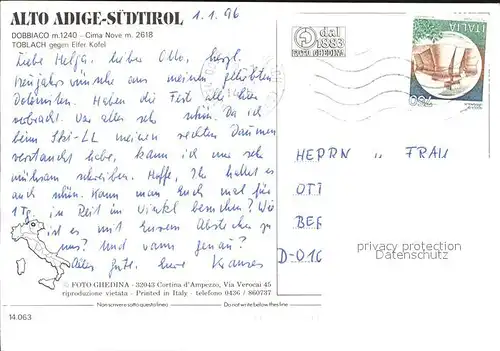 ALTO ADIGE-SÜDTIROL 1.1.96
DOBBIACO m.1240 - Cima Nove m. 2618
TOBLACH gegen Elfer Kofel
dal
1883
FOTO GHEDINA
ITALIA
750
Liebe Helga, lieber Otto, herzl.
Neujahrswünsche aus meinen geliebten
Dolomiten. Haben die Feste alle hier
verbracht. War alles sehr schön. Da ich
beim Ski-LL meinen rechten Daumen
verstaucht habe, kann ich nur sehr
mühsam schreiben. Hoffe, Ihr hattet es
auch schön. Kann man Euch mal für
1 Tg. in Reit im Winkel besuchen? Wie
ist es mit Eurem Abstecher zu
uns? Und wann genau?
Alles Gute, Eure
HERRN u FRAU
OTT
BER
D-016
privacy protection
Datenschutz
© FOTO GHEDINA - 32043 Cortina d'Ampezzo, Via Verocai 45
riproduzione vietata - Printed in Italy - telefono 0436 / 860737
Non scrivere sotto questa linea Do not write below this line
14.063